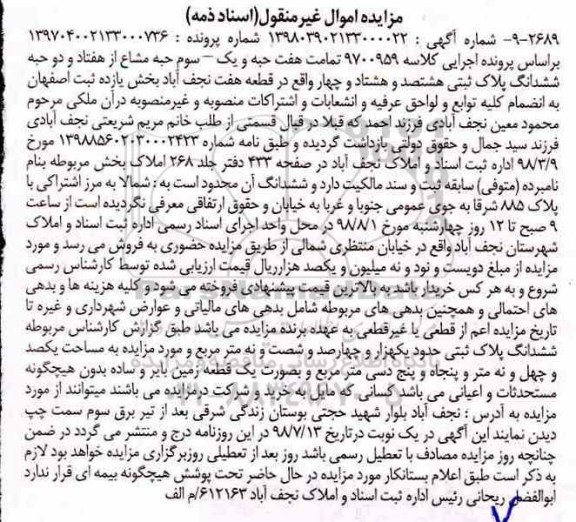 مزایده اموال غیرمنقول(اسناد ذمه)
۲۶۸۹-۹- شماره آگهی : ۱۳۹۸۰۳۹۰۲۱۳۳۰۰۰۰۲۲ شماره پرونده : ۱۳۹۷۰۴۰۰۲۱۳۳۰۰۰۷۳۶
براساس پرونده اجرایی کلاسه ۹۷۰۰۹۵۹ تمامت هفت حبه و یک – سوم حبه مشاع از هفتاد و دو حبه
ششدانگ پلاک ثبتی هشتصد و هشتاد و چهار واقع در قطعه هفت نجف آباد بخش یازده ثبت اصفهان
به انضمام کلیه توابع و لواحق عرفیه و انشعابات و اشتراکات منصوبه و غیرمنصوبه درآن ملکی مرحوم
محمود معین نجف آبادی فرزند احمد که قبلا در قبال قسمتی از طلب خانم مریم شریعتی نجف آبادی
فرزند سید جمال و حقوق دولتی بازداشت گردیده و طبق نامه شماره ۱۳۹۸۸۵۶۰۲۰۳۰۰۰۲۴۲۳ مورخ
۹۸/۳/۹ اداره ثبت اسناد و املاک نجف آباد در صفحه ۴۳۳ دفتر جلد ۲۶۸ املاک بخش مربوطه بنام
نامبرده (متوفی) سابقه ثبت و سند مالکیت دارد و ششدانگ آن محدود است به : شمالا به مرز اشتراکی با
پلاک ۸۸۵ شرقا به جوی عمومی جنوبا و غربا به خیابان و حقوق ارتفاقی معرفی نگردیده است از ساعت
۹ صبح تا ۱۲ روز چهارشنبه مورخ ۹۸/۸/۱ در محل واحد اجرای اسناد رسمی اداره ثبت اسناد و املاک
شهرستان نجف آباد واقع در خیابان منتظری شمالی از طریق مزایده حضوری به فروش می رسد و مورد
مزایده از مبلغ دویست و نود و نه میلیون و یکصد هزارریال قیمت ارزیابی شده توسط کارشناس رسمی
شروع و به هر کس خریدار باشد به بالاترین قیمت پیشنهادی فروخته می شود و کلیه هزینه ها و بدهی
های احتمالی و همچنین بدهی های مربوطه شامل بدهی های مالیاتی و عوارض شهرداری و غیره تا
تاریخ مزایده اعم از قطعی یا غیرقطعی به عهده برنده مزایده می باشد طبق گزارش کارشناس مربوطه
ششدانگ پلاک ثبتی حدود یکهزار و چهارصد و شصت و نه متر مربع و مورد مزایده به مساحت یکصد
و چهل و نه متر و پنجاه و پنج دسی متر مربع و بصورت یک قطعه زمین بایر و ساده بدون هیچگونه
مستحدثات و اعیانی می باشد کسانی که مایل به خرید و شرکت در مزایده می باشند میتوانند از مورد
مزایده به آدرس : نجف آباد بلوار شهید حجتی بوستان زندگی شرقی بعد از تیر برق سوم سمت چپ
دیدن نمایند این آگهی در یک نوبت درتاریخ ۹۸/۷/۱۳ در این روزنامه درج و منتشر می گردد در ضمن
چنانچه روز مزایده مصادف با تعطیل رسمی باشد روز بعد از تعطیلی روزبرگزاری مزایده خواهد بود لازم
به ذکر است طبق اعلام بستانکار مورد مزایده در حال حاضر تحت پوشش هیچگونه بیمه ای قرار ندارد
ابوالفضل ریحانی رئیس اداره ثبت اسناد و املاک نجف آباد ۶۱۲۱۶۳/م الف